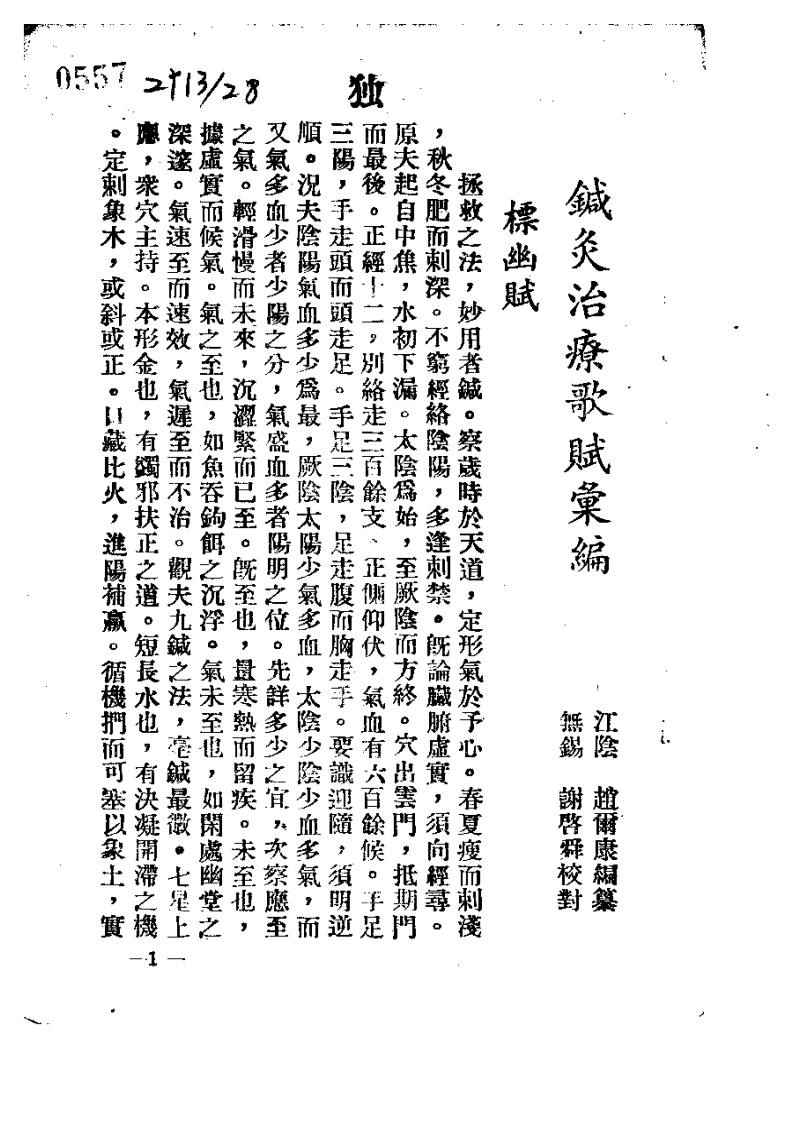 0557
2913/28
独
鍼灸治療歌賦彙編
江陰　趙爾康編纂
無錫　謝啓舜校對
標幽賦
拯救之法，妙用者鍼。察歲時於天道，定形氣於予心。春夏瘦而刺淺
，秋冬肥而刺深。不窮經絡陰陽，多逢刺禁。旣論臟腑虛實，須向經尋。
原夫起自中焦，水初下漏。太陰爲始，至厥陰而方終。穴出雲門，抵期門
而最後。正經十二，別絡走三百餘支、正側仰伏，氣血有六百餘候。手足
三陽，手走頭而頭走足。手足三陰，足走腹而胸走手。要識迎隨，須明逆
順。況夫陰陽氣血多少爲最，厥陰太陽少氣多血，太陰少陰少血多氣，而
又氣多血少者少陽之分，氣盛血多者陽明之位。先詳多少之宜，次察應至
之氣。輕滑慢而未來，沉澀緊而已至。旣至也，量寒熱而留疾。未至也，
據虛實而候氣。氣之至也，如魚吞鉤餌之沉浮。氣未至也，如閑處幽堂之
深邃。氣速至而速效，氣遲至而不治。觀夫九鍼之法，毫鍼最微。七星上
應，衆穴主持。本形金也，有蠲邪扶正之道。短長水也，有決凝開滯之機
。定刺象木，或斜或正。口藏比火，進陽補羸。循機捫而可塞以象土，實
—1—